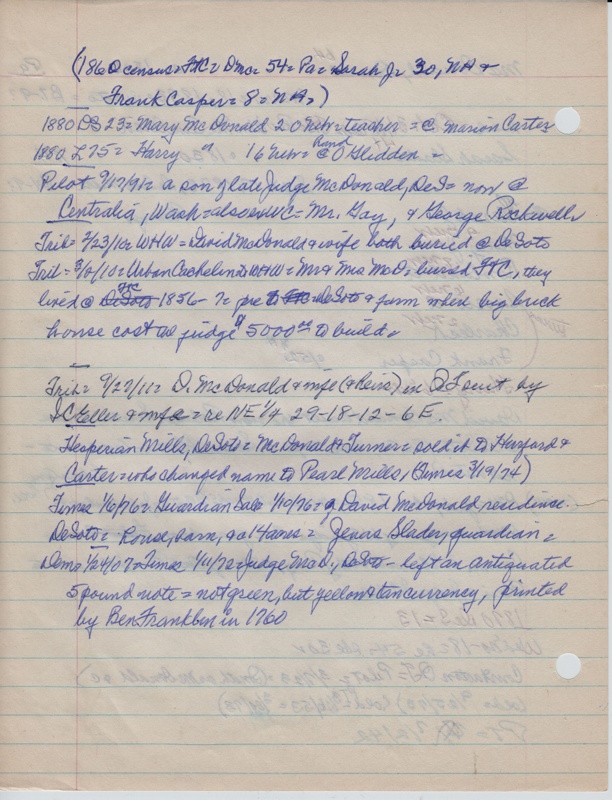 (1860 census = FtC = Dmc = 54 = Pa = Sarah J = 30, NA &
Frank Casper = 8 = NA,)
1880 DS 23 = Mary McDonald 20 nebr = teacher = @ Marion Carter
1880 L 75 = Harry " 16 nebr = hand @ O Glidden =
Pilot 9/17/91 = a son of late Judge McDonald, DeS = now @
Centralia, Wash = also exWC = Mr. Gay, & George Rockwell
Trib = 2/23/10 = WHW = David McDonald & wife both buried @ DeSoto
Trib = 3/ /10 = Urban Cachelin to WHW = Mr & Mrs McD, buried FtC, they
lived @ FtC 1856 - ? = pre DeSoto & farm where big brick
house cost Judge $5000.00 to build.
Trib = 9/27/11 = D. McDonald & wife (& heirs) in QT suit by
Eller & wife = re NE 1/4 29-18-12-6 E.
Hesperian Mills, DeSoto = McDonald & Turner = sold it to &
Carter = who changed name to Pearl Mills, (Times 3/19/74)
Times 1/6/76 = Guardian Sale 1/10/76 = of David McDonald residence.
DeSoto = house, barn, & 14 acres = Slader, guardian =
Demo 1/24/07 = Times 1/11/72 = Judge McD., DeSoto - left an antiquated
5 pound note = not green, but yellow & tan currency, printed
by Ben Franklin in 1760